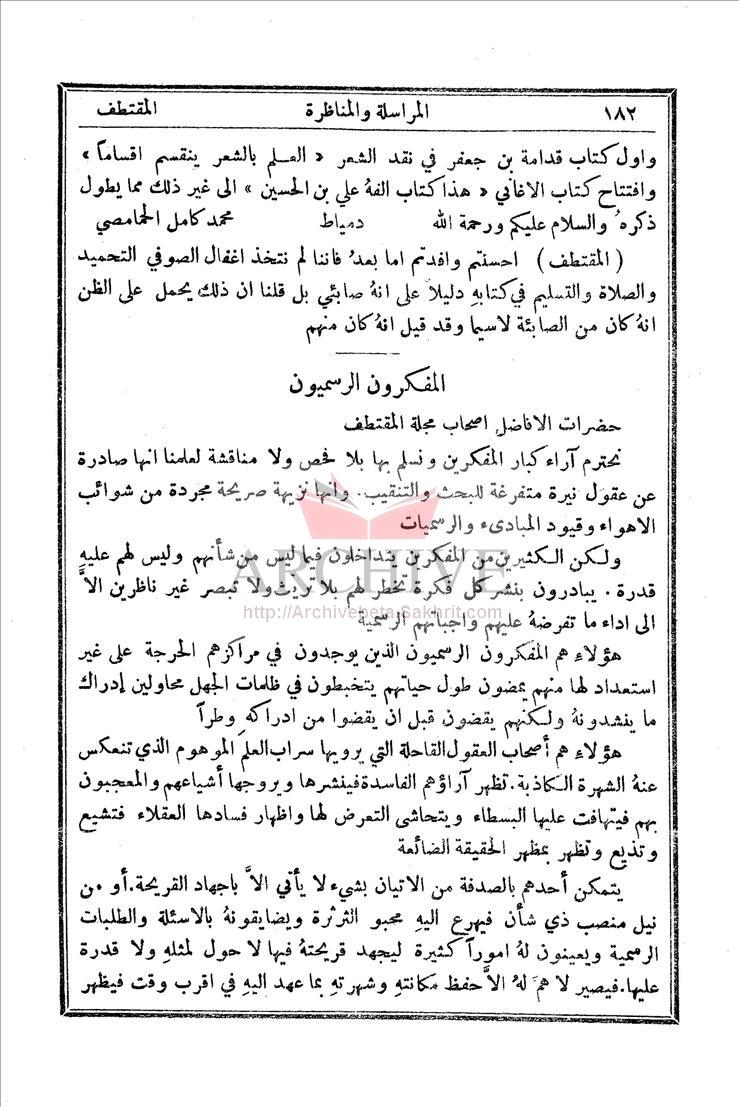 ١٨٢ المراسلة والمناظرة المقتطف
واول كتاب قدامة بن جعفر في نقد الشعر « العلم بالشعر ينقسم اقساماً »
وافتتاح كتاب الاغاني « هذا كتاب الفهُ علي بن الحسين » الى غير ذلك مما يطول
ذكرهُ والسلام عليكم ورحمة الله دمياط محمد كامل الحمامصي
( المقتطف ) احسنتم وافدتم اما بعدُ فاننا لم نتخذ اغفال الصوفي التحميد
والصلاة والتسليم في كتابهِ دليلاً على انهُ صابئي بل قلنا ان ذلك يحمل على الظن
انهُ كان من الصابئة لاسيما وقد قيل انهُ كان منهم
المفكرون الرسميون
حضرات الافاضل اصحاب مجلة المقتطف
نحترم آراء كبار المفكرين ونسلم بها بلا فحص ولا مناقشة لعلمنا انها صادرة
عن عقول نيرة متفرغة للبحث والتنقيب. وانها نزيهة صريحة مجردة من شوائب
الاهواء وقيود المبادىء والرسميات
ARCHIVE
ولكن الكثيرين من المفكرين يتداخلون فيما ليس من شأنهم وليس لهم عليهِ
قدرة . يبادرون بنشر كل فكرة تخطر لهم بلا تريث ولا تبصر غير ناظرين الاَّ
http://Archivebeta.Sakhrit.com
الى اداء ما تفرضهُ عليهم واجباتهم الرسمية
هؤلاء هم المفكرون الرسميون الذين يوجدون في مراكزهم الحرجة على غير
استعداد لها منهم يمضون طول حياتهم يتخبطون في ظلمات الجهل محاولين إدراك
ما ينشدونهُ ولكنهم يقضون قبل ان يقضوا من ادراكهِ وطراً
هؤلاء هم أصحاب العقول القاحلة التي يرويها سراب العلم الموهوم الذي تنعكس
عنهُ الشهرة الكاذبة. تظهر آراؤهم الفاسدة فينشرها ويروجها أشياعهم والمعجبون
بهم فيتهافت عليها البسطاء ويتحاشى التعرض لها واظهار فسادها العقلاء فتشيع
وتذيع وتظهر بمظهر الحقيقة الضائعة
يتمكن أحدهم بالصدفة من الاتيان بشيء لا يأتي الاَّ باجهاد القريحة. أو من
نيل منصب ذي شأن فيهرع اليهِ محبو الثرثرة ويضايقونهُ بالاسئلة والطلبات
الرسمية ويعينون لهُ اموراً كثيرة ليجهد قريحتهُ فيها لا حول لمثلهِ ولا قدرة
عليها. فيصير لا همَّ لهُ الاَّ حفظ مكانتهِ وشهرتهِ بما عهد اليهِ في اقرب وقت فيظهر